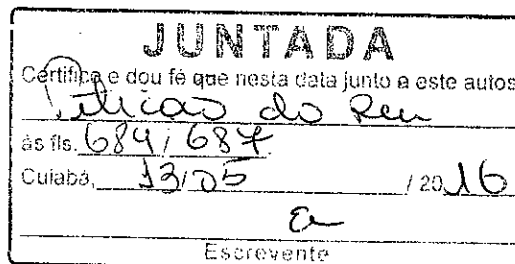 JUNTADA
Certifico e dou fé que nesta data junto a este autos
Petição do Réu
às fls. 684/687
Cuiabá, 13/05 / 2016
Escrevente